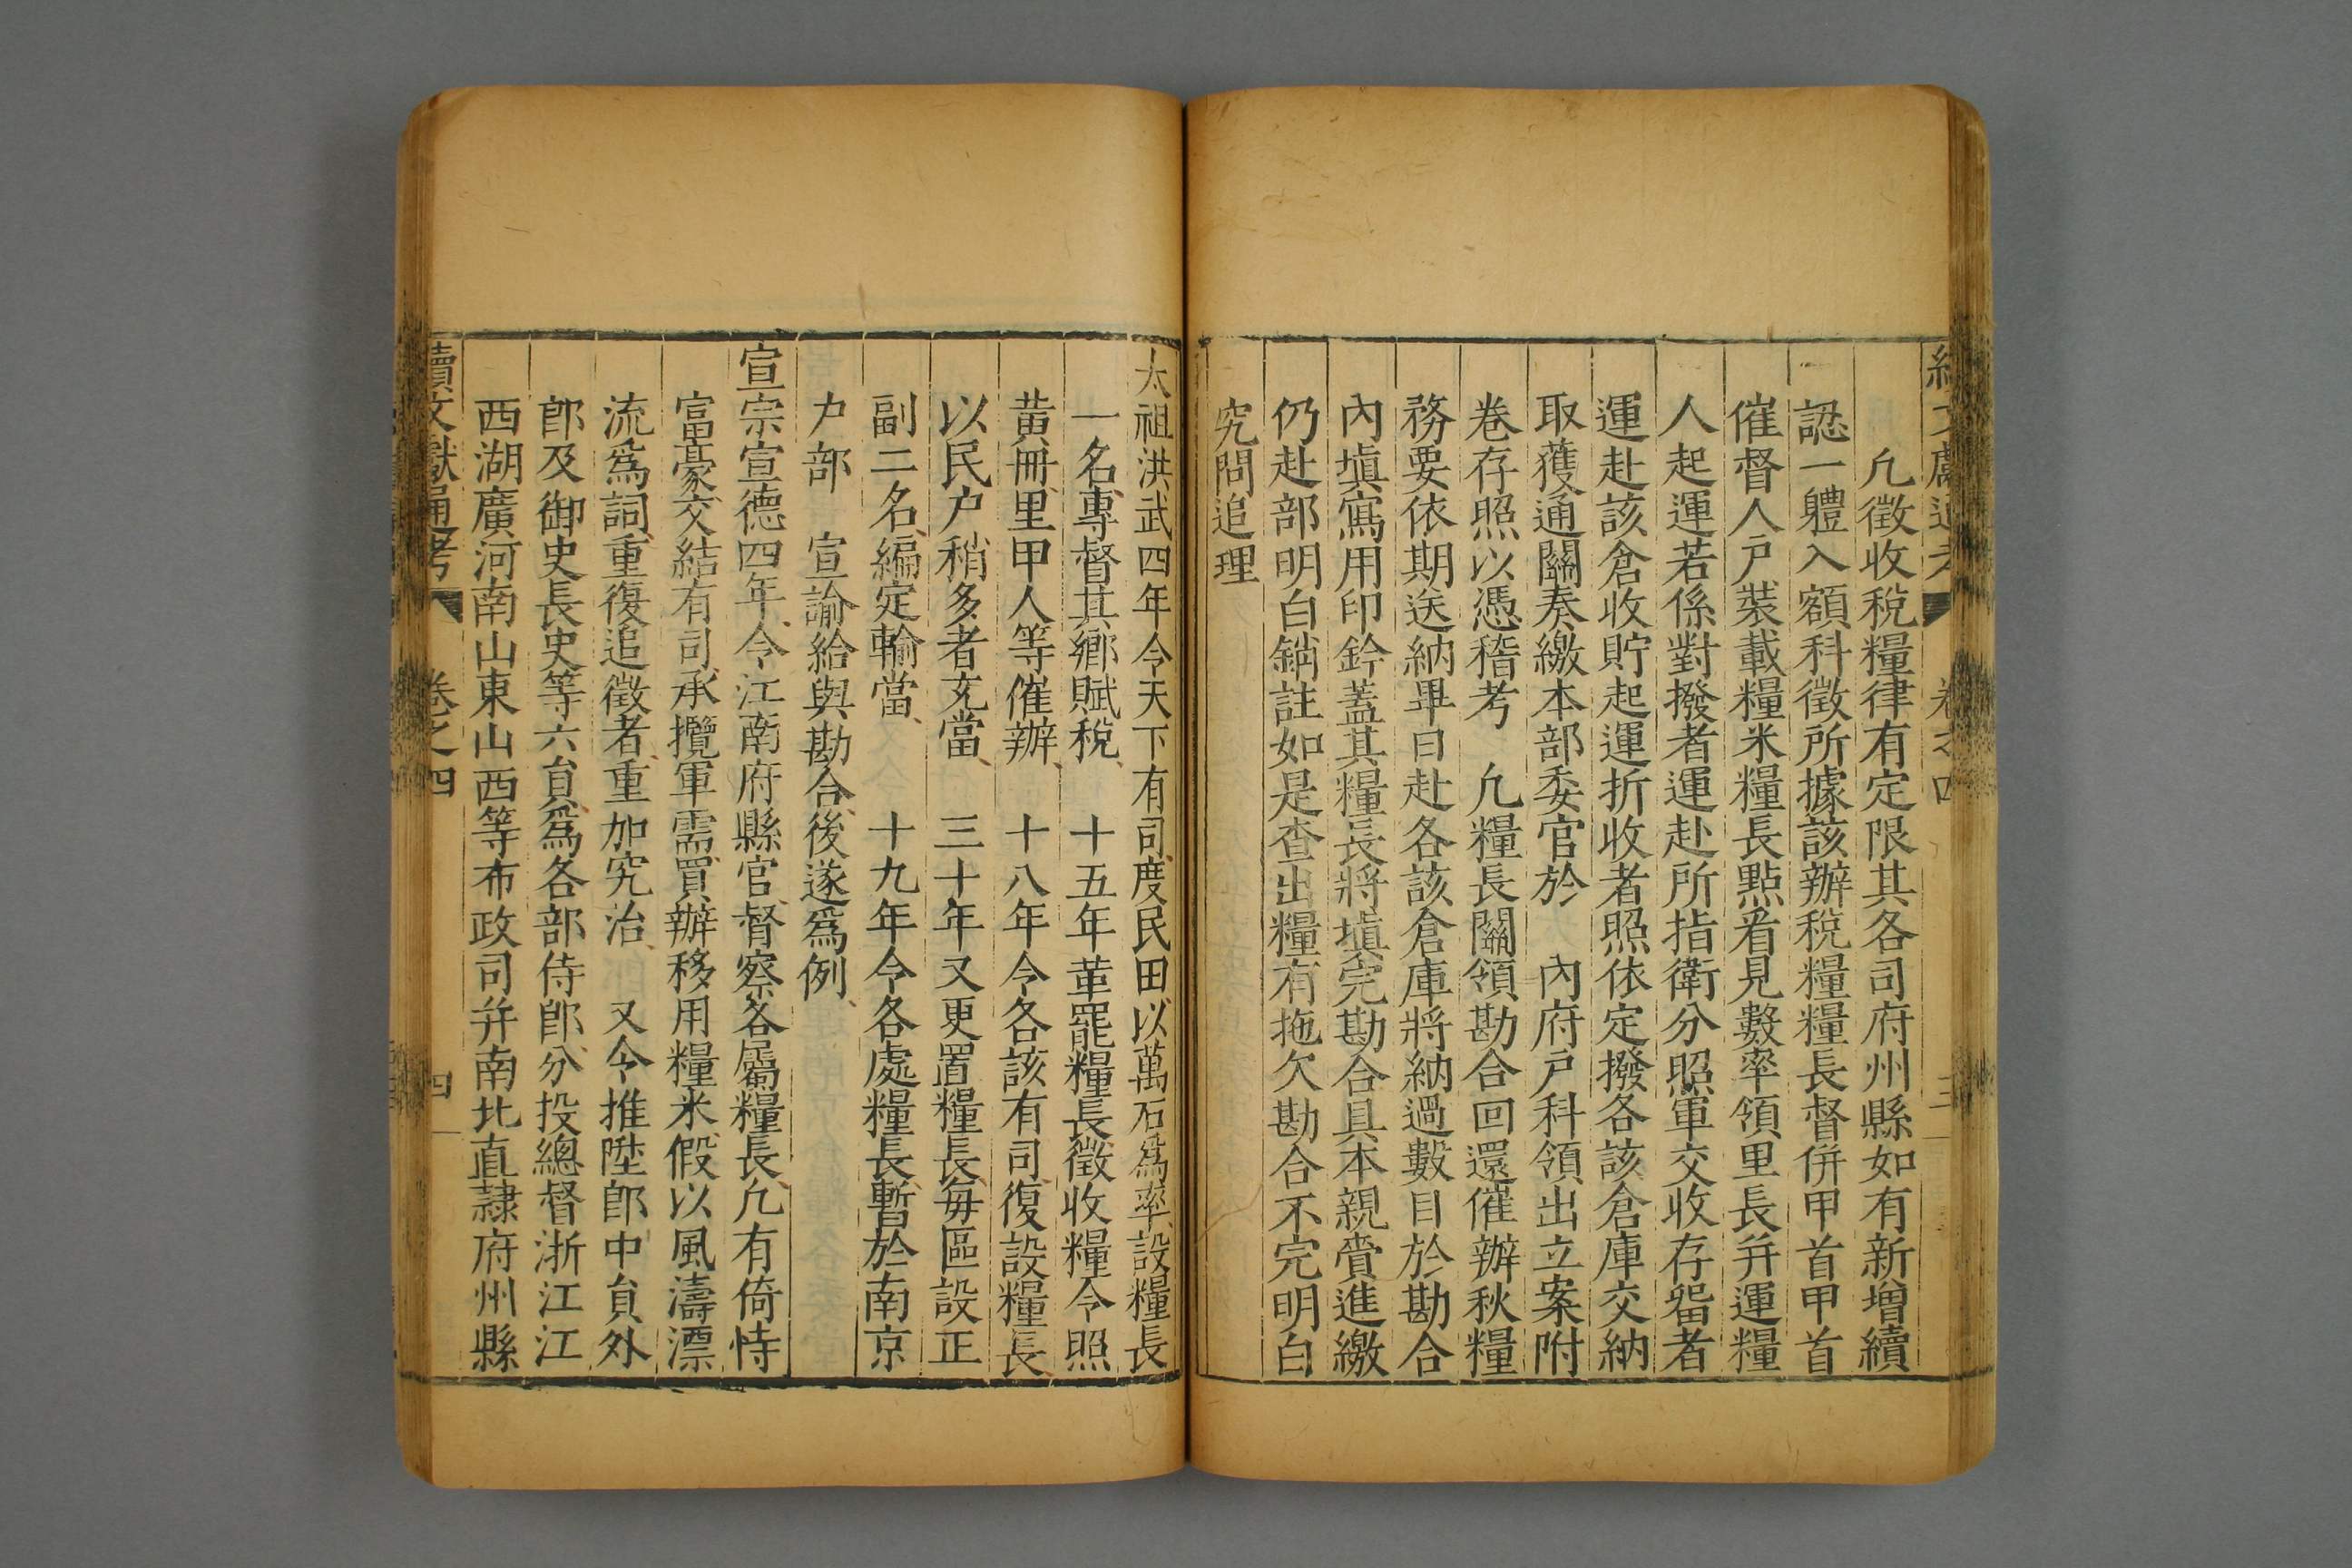 續文獻通考 卷之四 三
凢徵收稅糧律有定限其各司府州縣如有新增續
認一體入額科徵所據該辦稅糧糧長督併甲首甲首
催督人戶裝載糧米糧長點看見數率領里長并運糧
人起運若係對撥者運赴所指衛分照軍交收存畱者
運赴該倉收貯起運折收者照依定撥各該倉庫交納
取獲通關奏繳本部委官於 內府戶科領出立案附
卷存照以憑稽考 凢糧長關領勘合回還催辦秋糧
務要依期送納畢日赴各該倉庫將納過數目於勘合
內塡寫用印鈐蓋其糧長將塡完勘合具本親賫進繳
仍赴部明白銷註如是查出糧有拖欠勘合不完明白
究問追理
太祖洪武四年令天下有司度民田以萬石爲率設糧長
一名專督其鄉賦稅 十五年革罷糧長徵收糧令照
黃冊里甲人等催辦 十八年令各該有司復設糧長
以民户稍多者充當 三十年又更置糧長每區設正
副二名編定輪當 十九年令各處糧長暫於南京
户部 宣諭給與勘合後遂爲例
宣宗宣德四年令江南府縣官督察各屬糧長凢有倚恃
富豪交結有司承攬軍需買辦移用糧米假以風濤漂
流爲詞重復追徵者重加究治 又令推陞郎中貟外
郎及御史長史等六貟爲各部侍郎分投總督浙江江
西湖廣河南山東山西等布政司并南北直隸府州縣
續文獻通考 卷之四 四